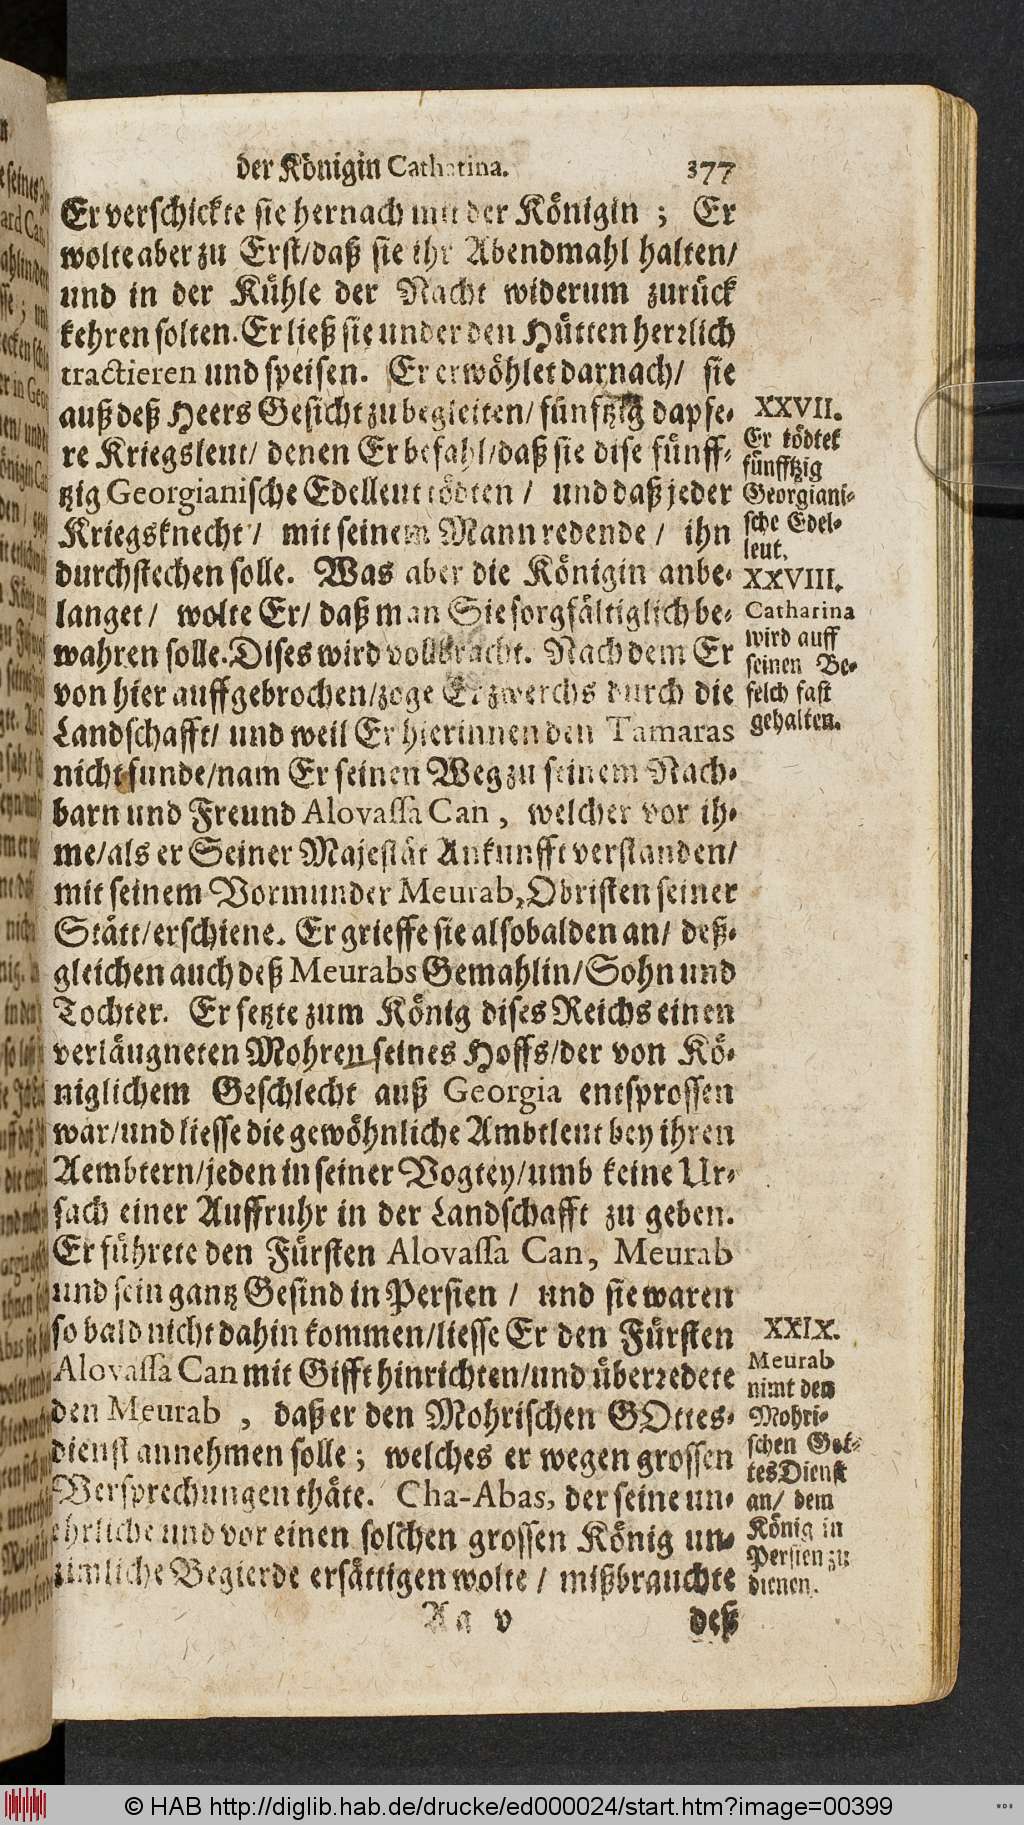 der Königin Catharina. 377
Er verschickte sie hernach mit der Königin ; Er
wolte aber zu Erst/daß sie ihr Abendmahl halten/
und in der Kühle der Nacht widerum zurück
kehren solten. Er ließ sie under den Hütten herrlich
tractieren und speisen. Er erwöhlet darnach/ sie
auß deß Heers Gesicht zu begleiten/ fünfftzig dapfe-
re Kriegsleut/ denen Er befahl/daß sie dise fünff-
tzig Georgianische Edelleut tödten / und daß jeder
Kriegsknecht / mit seinem Mann redende / ihn
durchstechen solle. Was aber die Königin anbe-
langet / wolte Er/ daß man Sie sorgfältiglich be-
wahren solle. Dises wird vollbracht. Nach dem Er
von hier auffgebrochen/zoge Er zwerchs durch die
Landschafft/ und weil Er hierinnen den Tamaras
nicht funde/nam Er seinen Weg zu seinem Nach-
barn und Freund Alovassa Can , welcher vor ih-
me/als er Seiner Majestät Ankunfft verstanden/
mit seinem Vormunder Meurab, Obristen seiner
Stätt/erschiene. Er grieffe sie alsobalden an/ deß-
gleichen auch deß Meurabs Gemahlin/Sohn und
Tochter. Er setzte zum König dises Reichs einen
verläugneten Mohren seines Hoffs/der von Kö-
niglichem Geschlecht auß Georgia entsprossen
war/und liesse die gewöhnliche Ambtleut bey ihren
Aembtern/jeden in seiner Vogtey/umb keine Ur-
sach einer Auffruhr in der Landschafft zu geben.
Er führete den Fürsten Alovassa Can, Meurab
und sein gantz Gesind in Persien / und sie waren
so bald nicht dahin kommen/liesse Er den Fürsten
Alovassa Can mit Gifft hinrichten/und überredete
den Meurab , daß er den Mohrischen GOttes-
dienst annehmen solle ; welches er wegen grossen
Versprechungen thäte. Cha-Abas, der seine un-
ehrliche und vor einen solchen grossen König un-
zimliche Begierde ersättigen wolte / mißbrauchte
Aa v deß
XXVII.
Er tödtet
fünfftzig
Georgiani-
sche Edel-
leut.
XXVIII.
Catharina
wird auff
seinen Be-
felch fast
gehalten.
XXIX.
Meurab
nimt den
Mohri-
schen Got-
tes Dienst
an/ dem
König in
Persien zu
dienen.
© HAB http://diglib.hab.de/drucke/ed000024/start.htm?image=00399